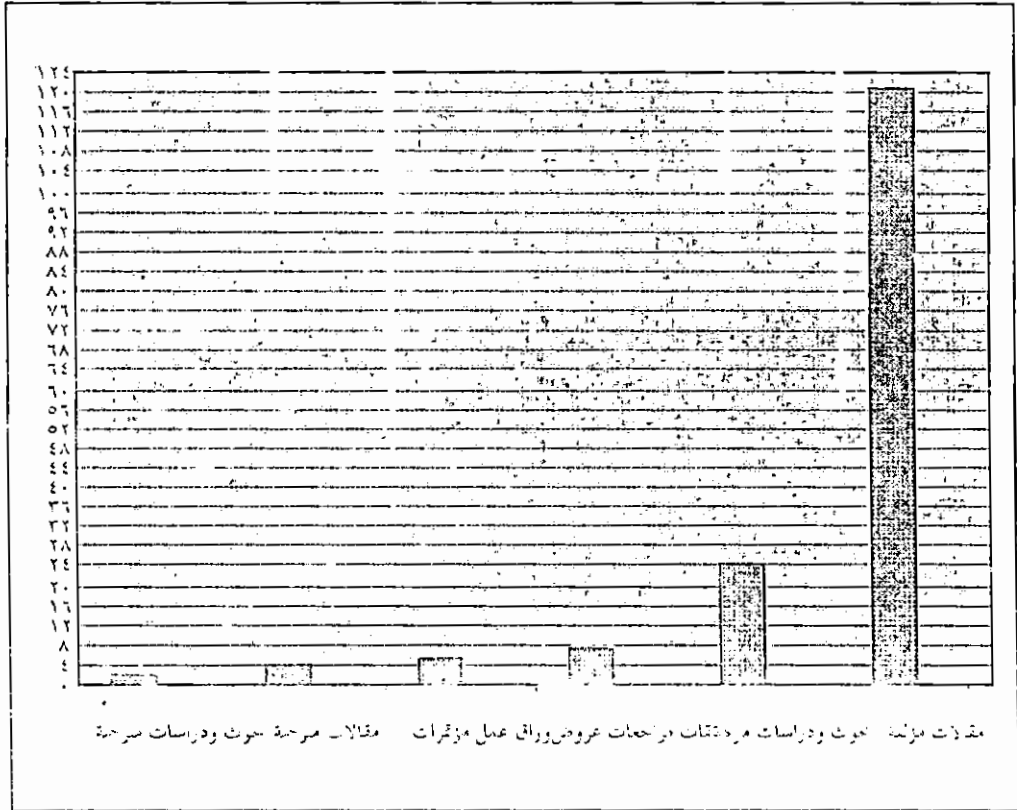 ١٢٤
١٢٠
١١٦
١١٢
١٠٨
١٠٤
١٠٠
٩٦
٩٢
٨٨
٨٤
٨٠
٧٦
٧٢
٦٨
٦٤
٦٠
٥٦
٥٢
٤٨
٤٤
٤٠
٣٦
٣٢
٢٨
٢٤
٢٠
١٦
١٢
٨
٤
٠
مقالات مؤلفة بحوث ودراسات مراجعات عروض أوراق عمل مؤتمرات مقالات مترجمة بحوث ودراسات مترجمة